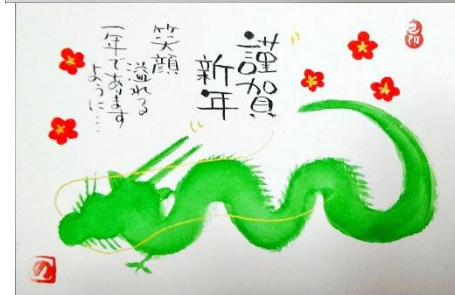 謹賀
新年
笑顔
溢れる
一年であります
ように…
の